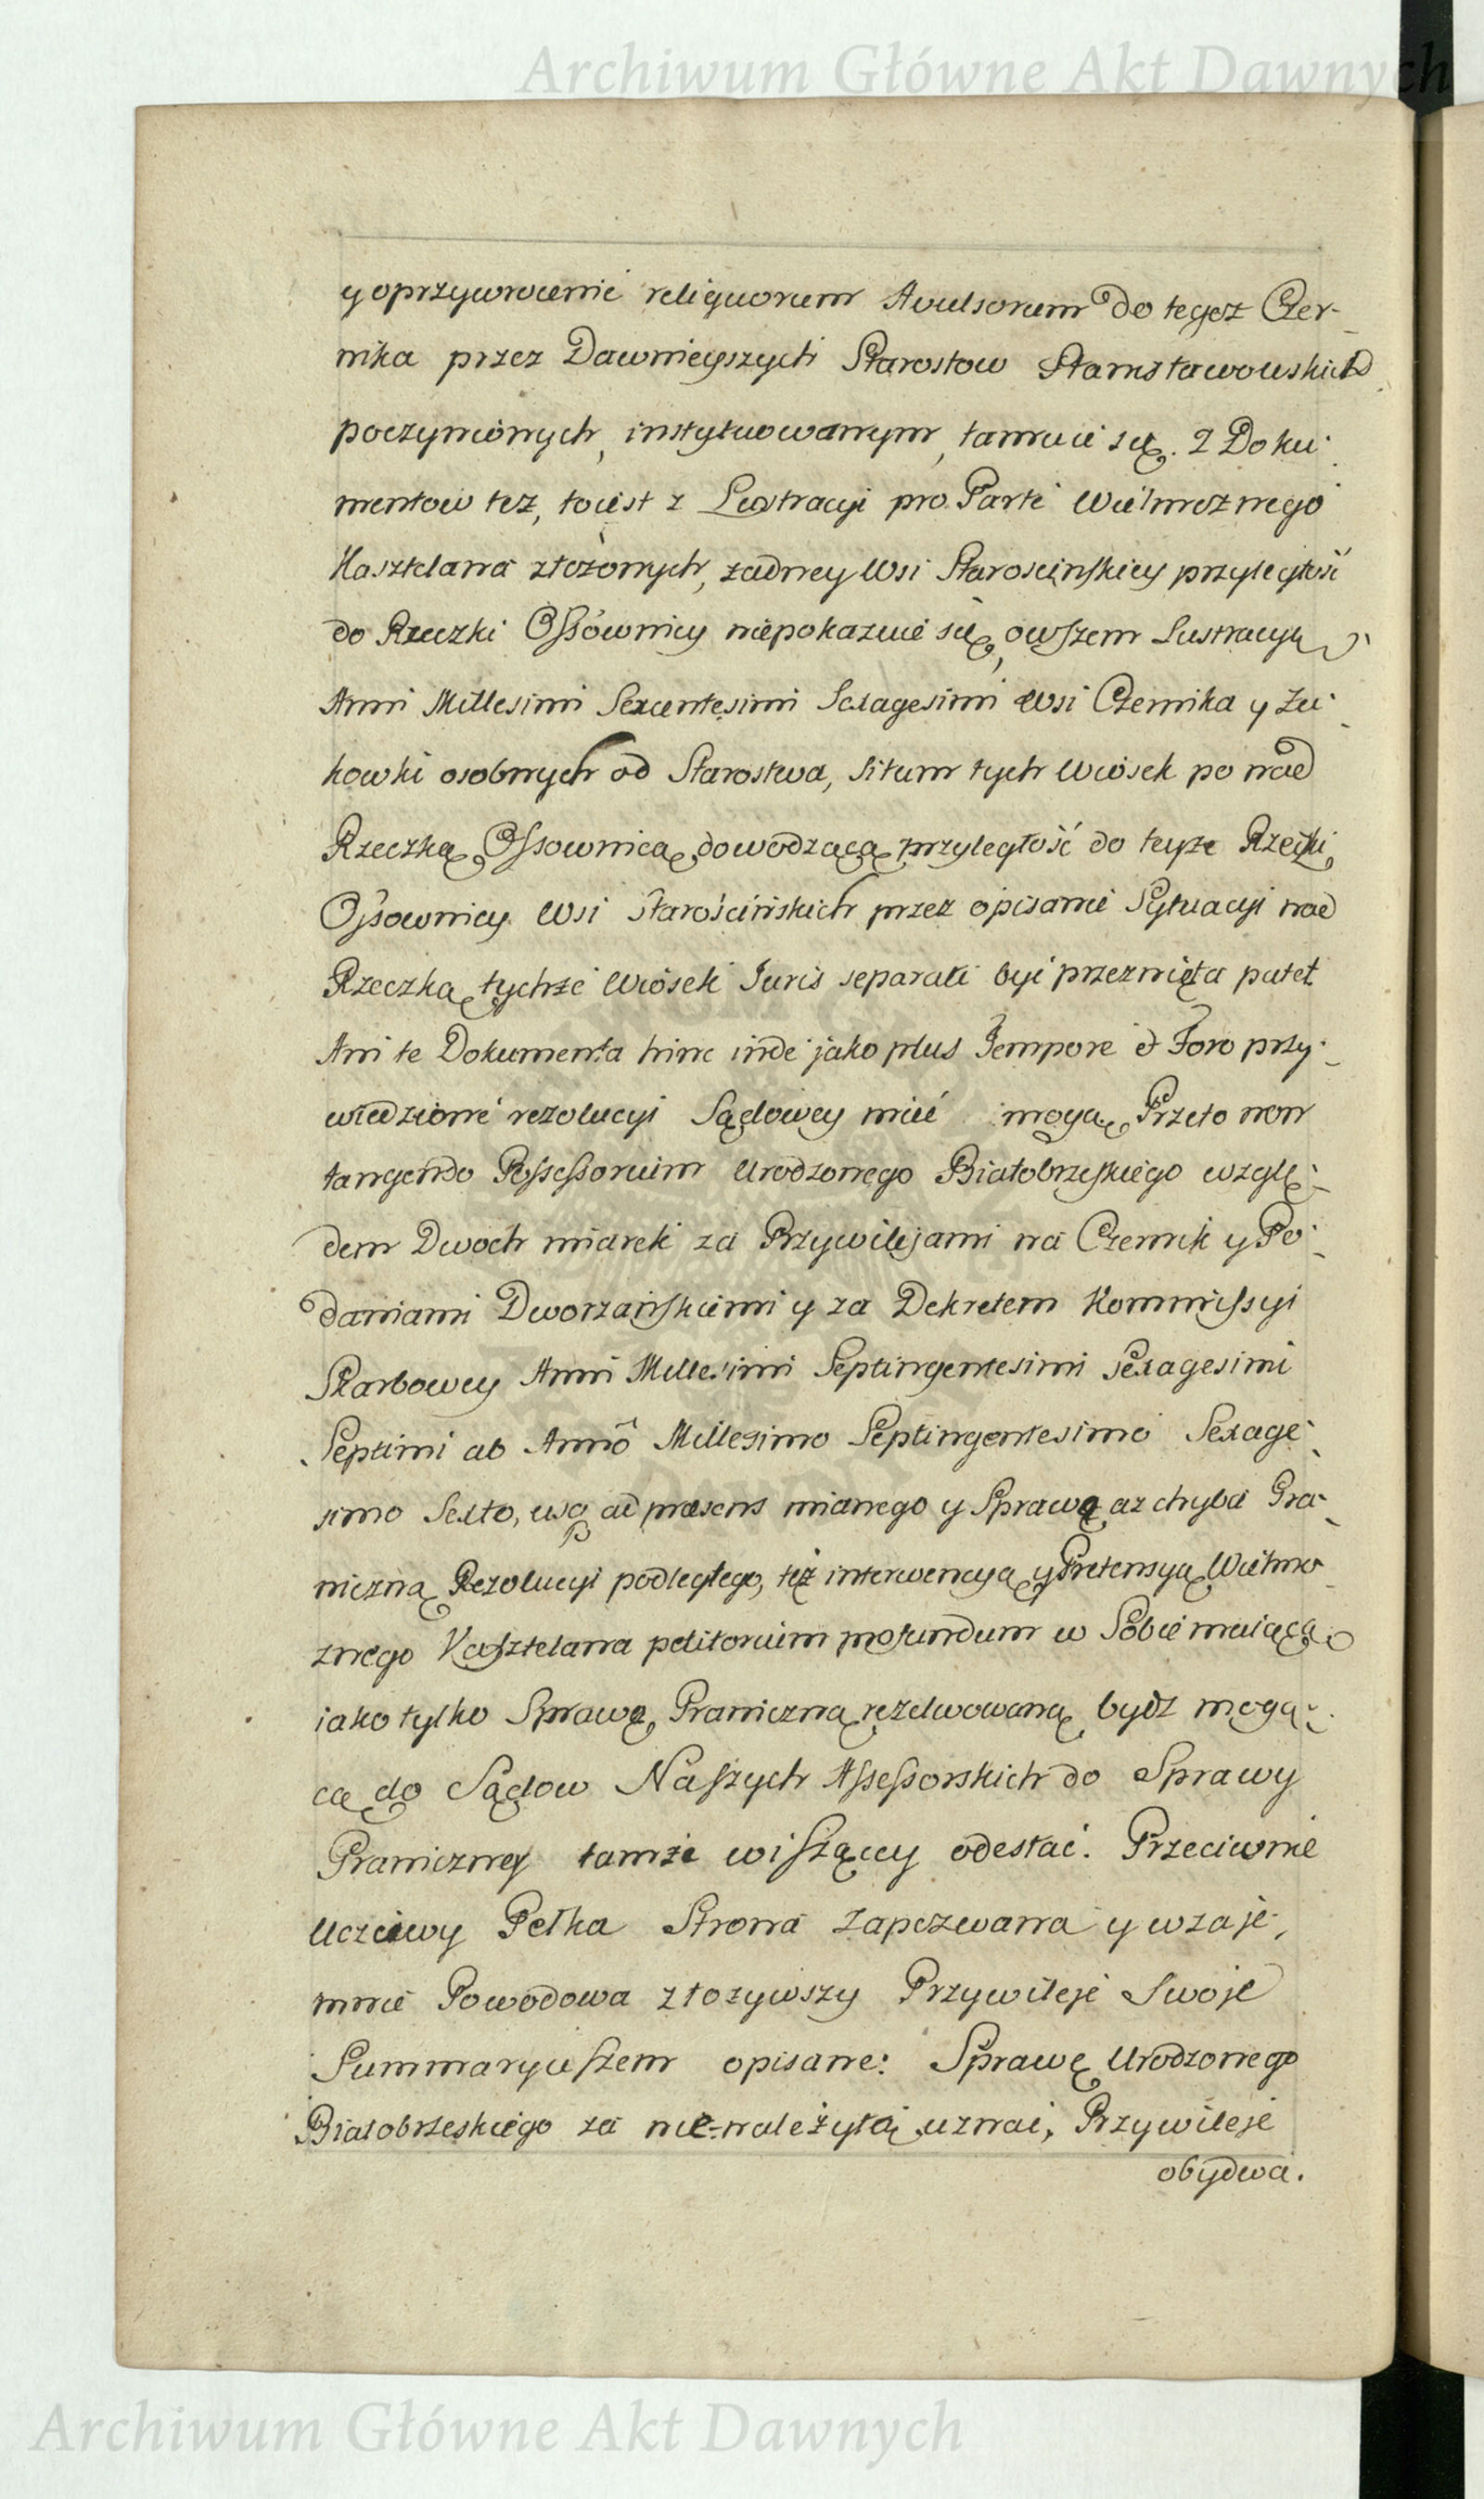 Archiwum Główne Akt Dawnych
y oprzywrocenie reliquorum Avulsorum do tegoż Czer-
nika przez Dawnieyszych Starostow Stanisławowskich
poczynionych, instytuowanym, tamuie się. Z Doku-
mentow też, toiest z Lustracyi pro Parte Wielmożnego
Kasztelana złożonych, żadney Wsi Starościnskiey przyległość
do Rzeczki Ossownicy niepokazuie się, owszem Lustracyą
Anni Millesimi Sexcentesimi Sexagesimi Wsi Czernika y Żu-
kowki osobnych od Starostwa, situm tych Wiosek po nad
Rzeczką Ossownicą dowodzącą przyległość do teyże Rzeczki
Ossownicy Wsi Starościńskich przez opisanie Sytuacyi nad
Rzeczką tychże Wiosek Juris separati być przeznięta patet
Ani te Dokumenta hinc inde jako plus Tempore et Foro przy-
wiedzione rezolucyi Sądowey mieć mogą. Przeto non
tangendo Possessorium Urodzonego Białobrzeskiego wzglę-
dem Dwoch miarek za Przywilejami na Czernik y Po-
daniami Dworzańskiemi y za Dekretem Kommissyi
Skarbowey Anni Millesimi Septingentesimi Sexagesimi
Septimi ab Annô Millesimo Septingentesimo Sexage-
simo Sexto, usq ad praesens mianego y Sprawą aż chyba Gra-
niczną Rezolucyi podległego, też interwencyą y Pretensyą Wielmo-
żnego Kasztelana petitorium mosundum w Sobie maiącą
iako tylko Sprawą Graniczną rezolwowaną bydź mogą-
cą do Sądow Naszych Assessorskich do Sprawy
Graniczney tamże wiszącey odesłać. Przeciwnie
Uczciwy Pełka Strona Zapozwana y wzaje-
mnie Powodowa złożywszy Przywileje Swoje
Summaryuszem opisane: Sprawę Urodzonego
Białobrzeskiego za nie-należytą uznać, Przywileje
obydwa.
Archiwum Główne Akt Dawnych